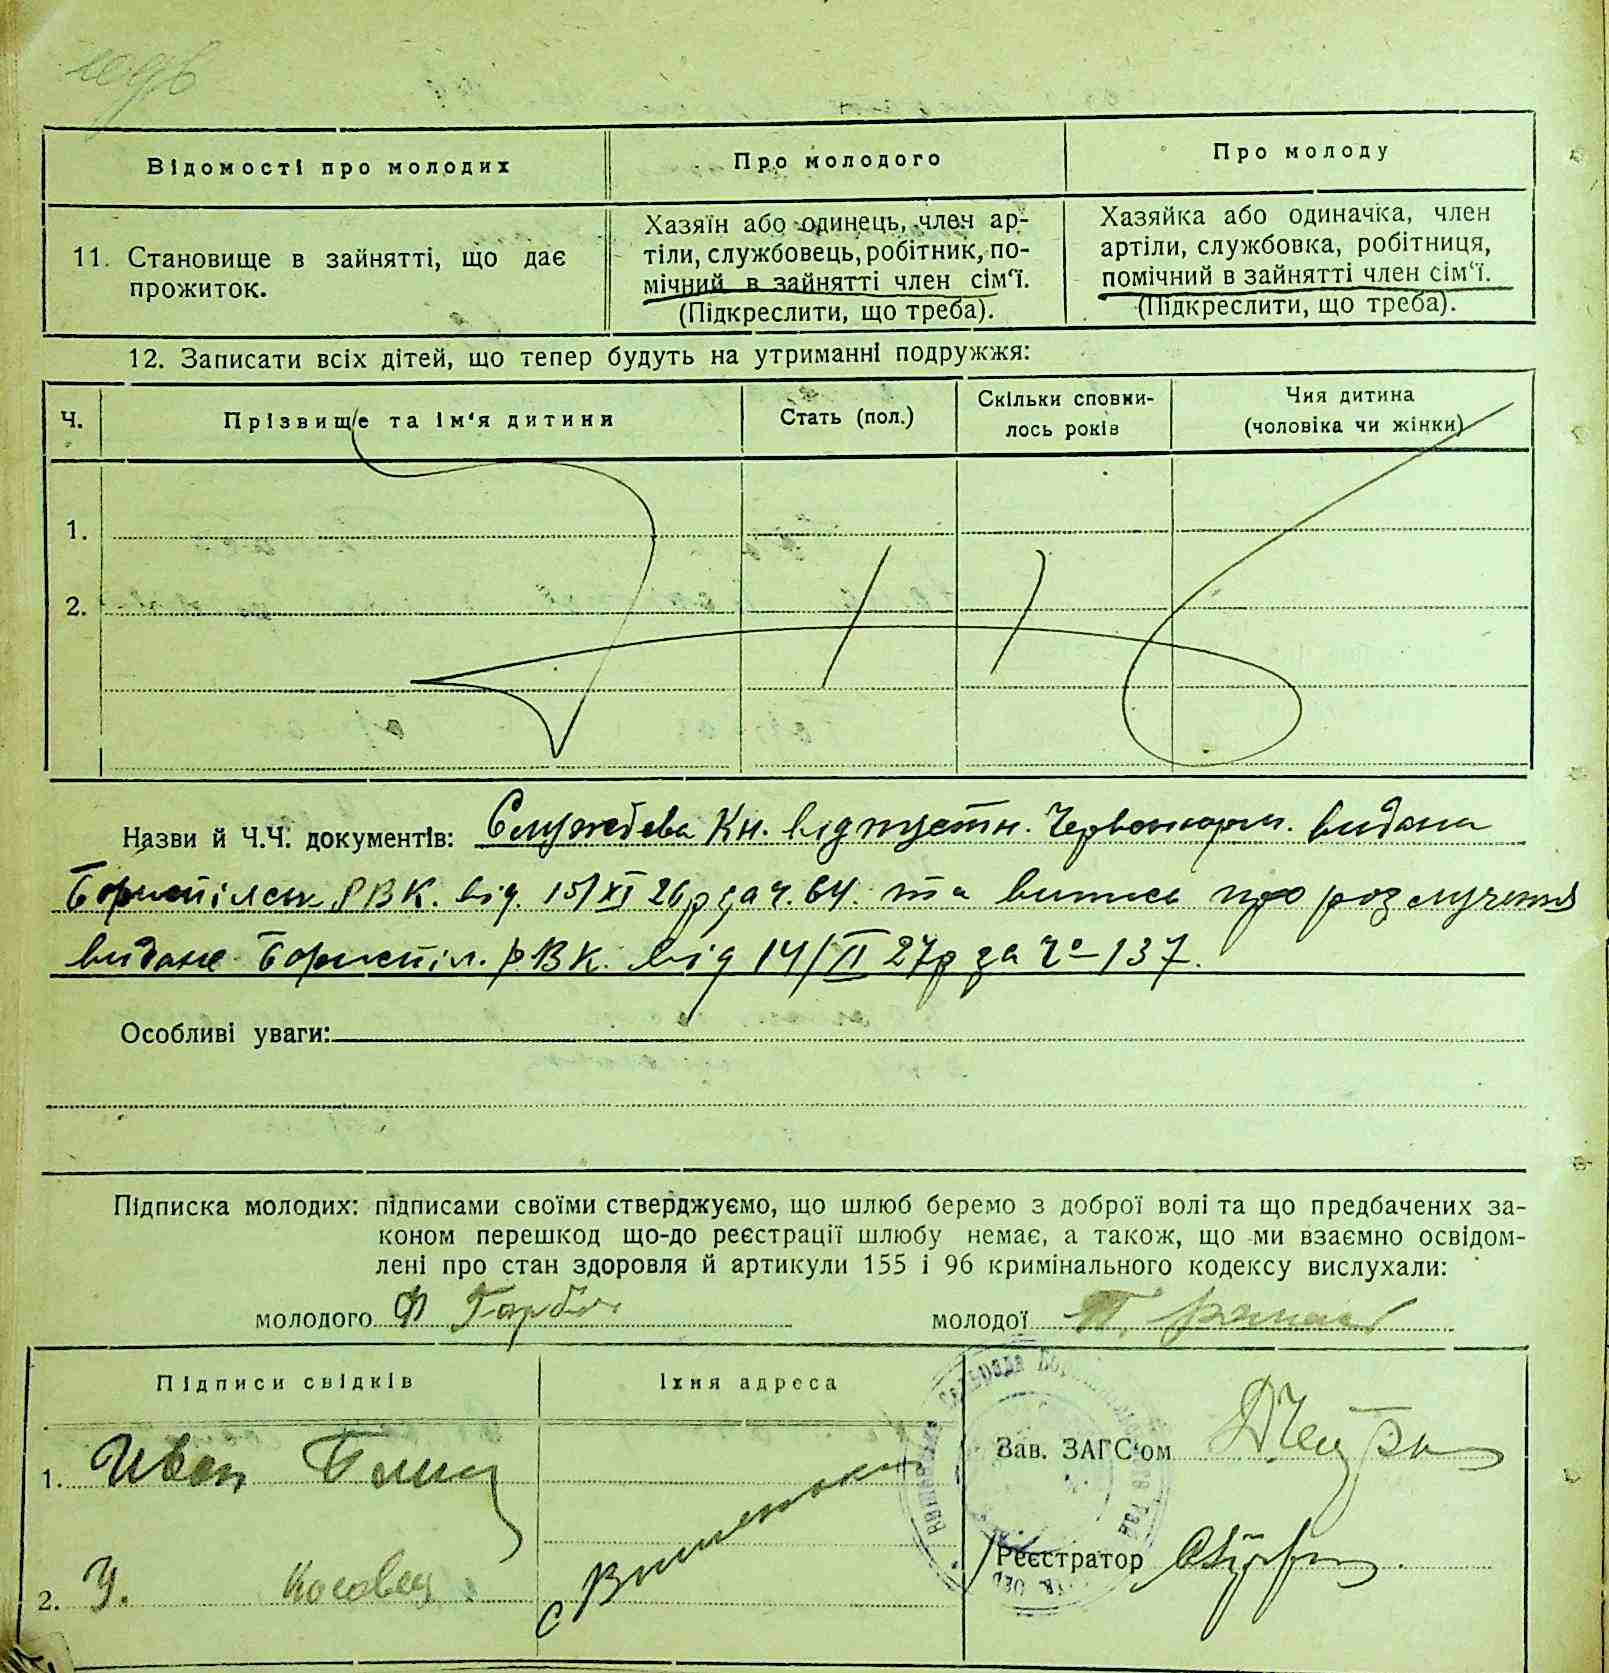 Відомості про молодих
Про молодого
Про молоду
11. Становище в зайнятті, що дає
прожиток.
Хазяїн або одинець, член ар-
тіли, службовець, робітник, по-
мічний в зайнятті член сім'ї.
(Підкреслити, що треба).
Хазяйка або одиначка, член
артіли, службовка, робітниця,
помічний в зайнятті член сім'ї.
(Підкреслити, що треба).
12. Записати всіх дітей, що тепер будуть на утриманні подружжя:
Ч.
Прізвище та ім'я дитини
Стать (пол.)
Скільки сповни-
лось років
Чия дитина
(чоловіка чи жінки)
1.
2.
Назви й Ч.Ч. документів: Службева Кн. відпустн. Червоноарм. видана
Бориспільск РВК. від 15/XI 26р за ч. 64. та витись про розлучення
видане Бориспіл. РВК. від 14/II 27р за Чо 137.
Особливі уваги:
Підписка молодих: підписами своїми стверджуємо, що шлюб беремо з доброї волі та що предбачених за-
коном перешкод що-до реєстрації шлюбу немає, а також, що ми взаємно освідом-
лені про стан здоровля й артикули 155 і 96 кримінального кодексу вислухали:
молодого Ф
молодої П.
Підписи свідків
Їхня адреса
1. Иван
2. У. Косовец
с
Зав. ЗАГС'ом
Реєстратор